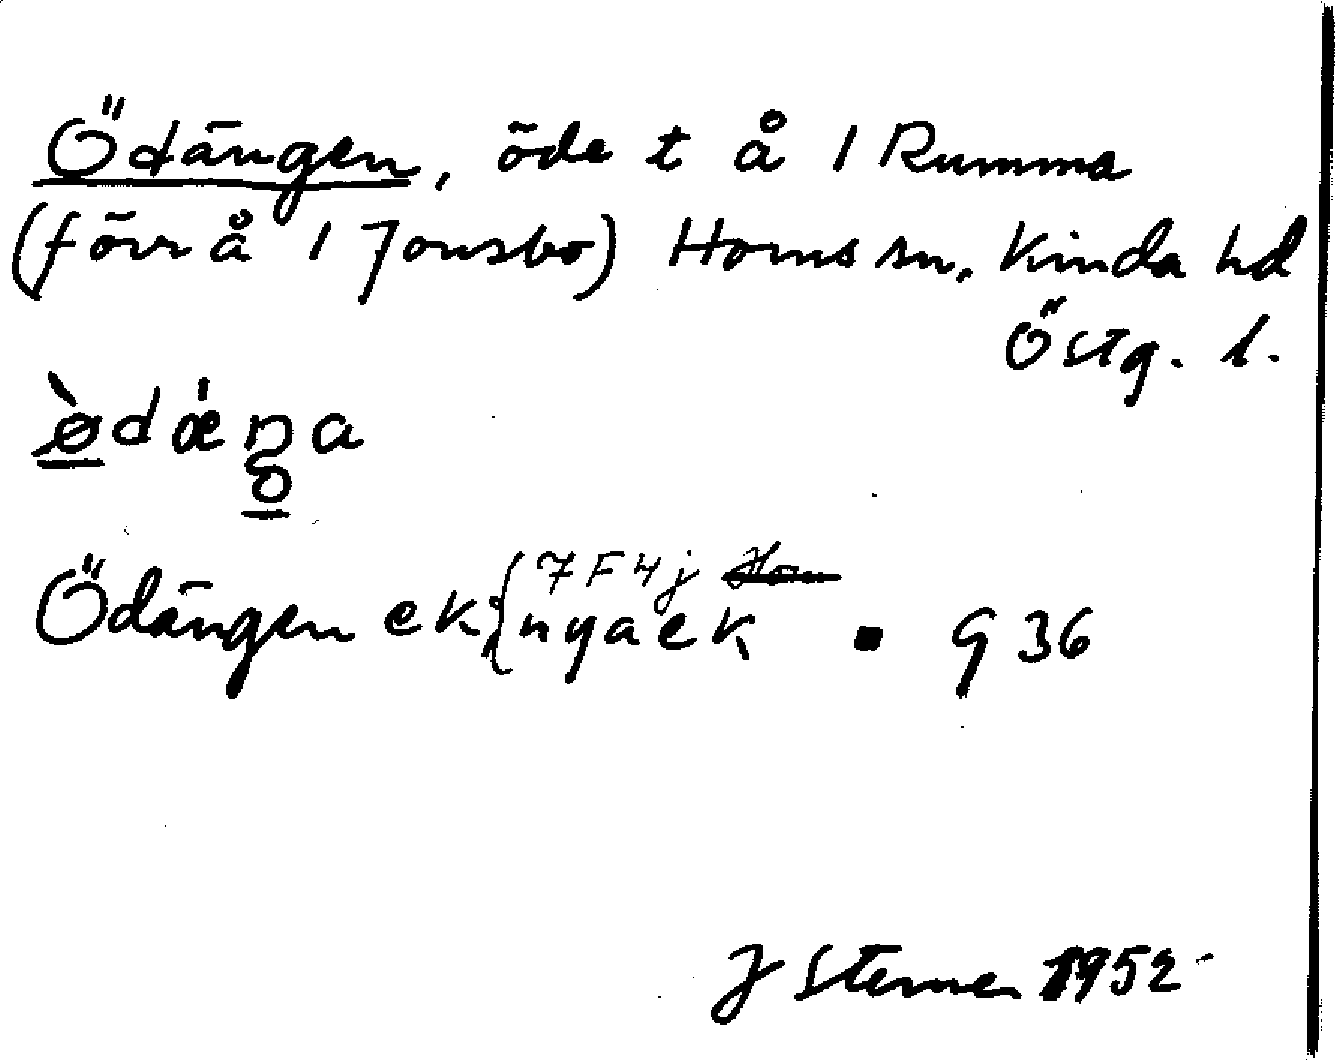 Ödängen, öde t å 1 Rumma
(förr å 1 Jonsbo) Horns sn, Kinda hd
Östg. l.
Ödängen ek { 7F4j
nya ek . 936
J Sterner 1952